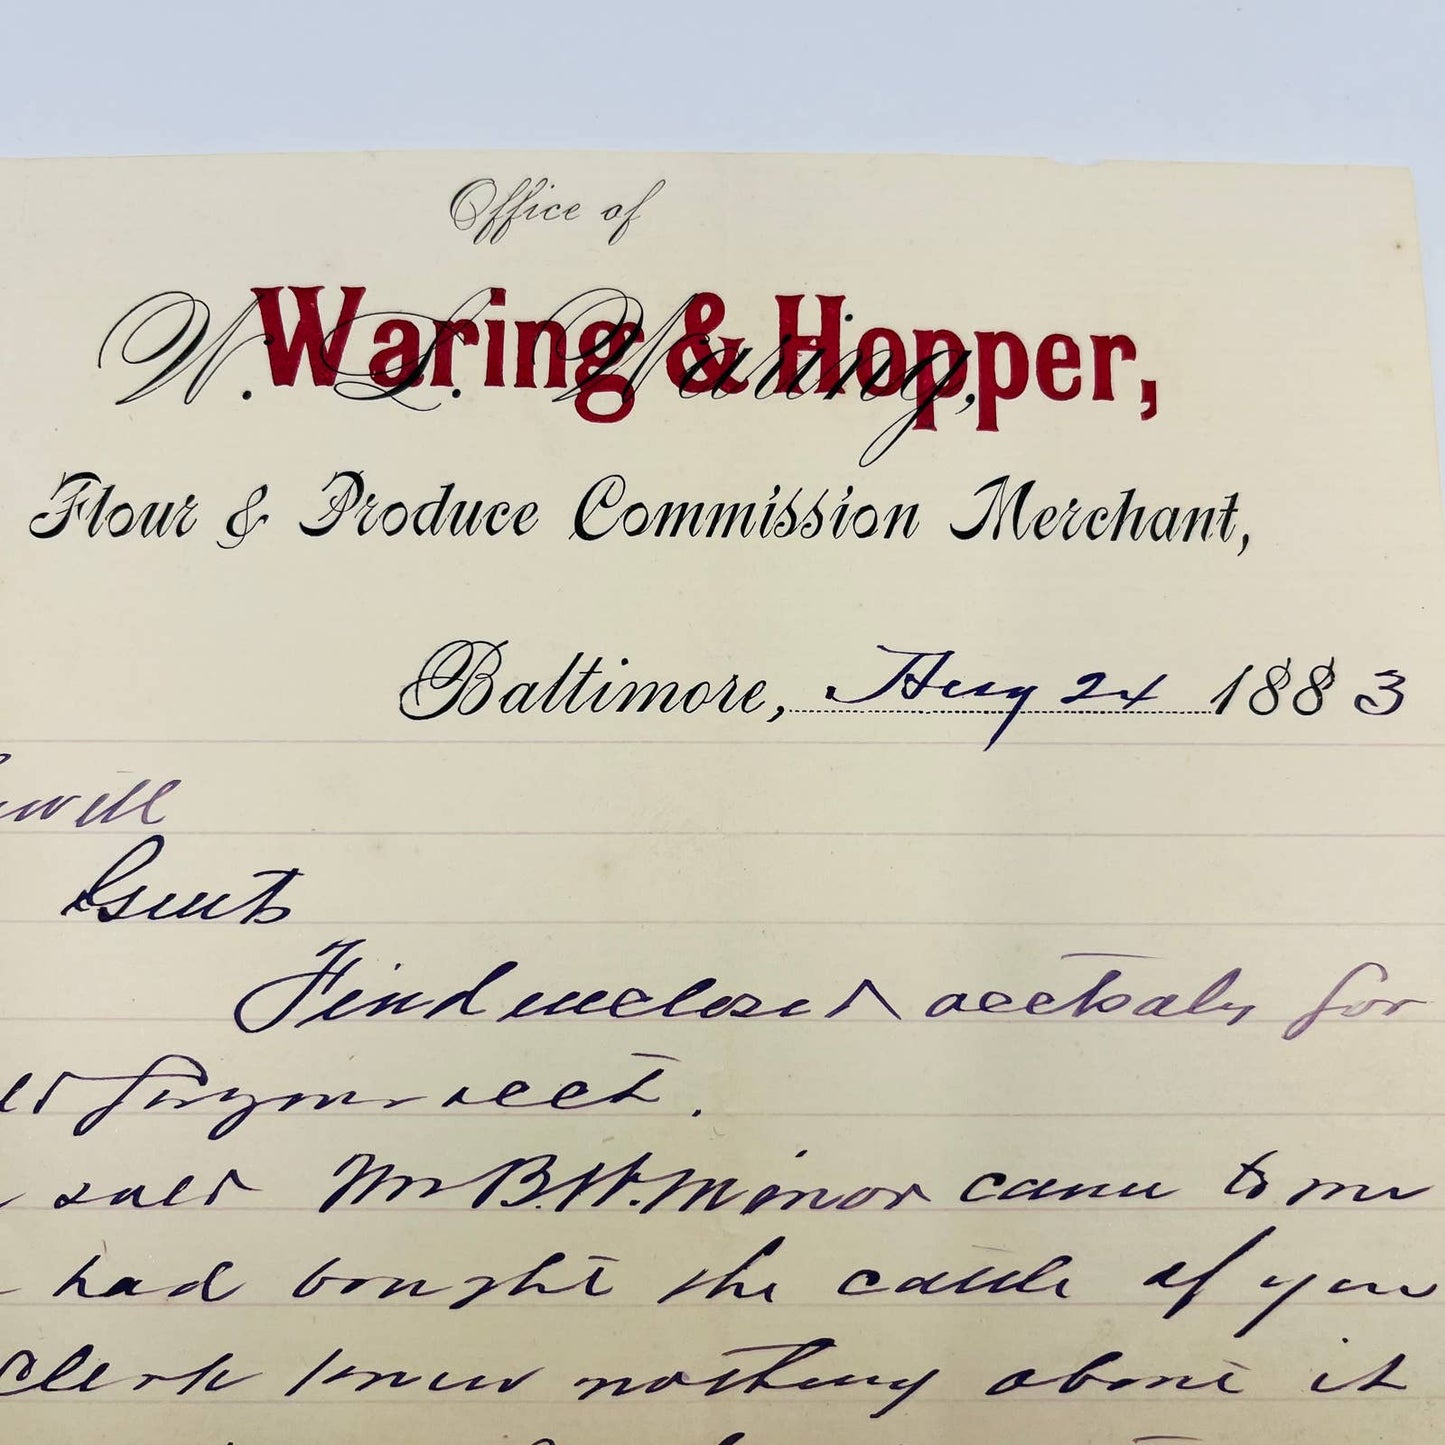 Office of
W. L. Waring,
Waring & Hopper,
Flour & Produce Commission Merchant,
Baltimore, Aug 24 1883
Gents
Find enclosed acct sales for
for your acct.
sale Mr B. W. Minor came to me
had bought the cattle of you
Clerk knew nothing about it